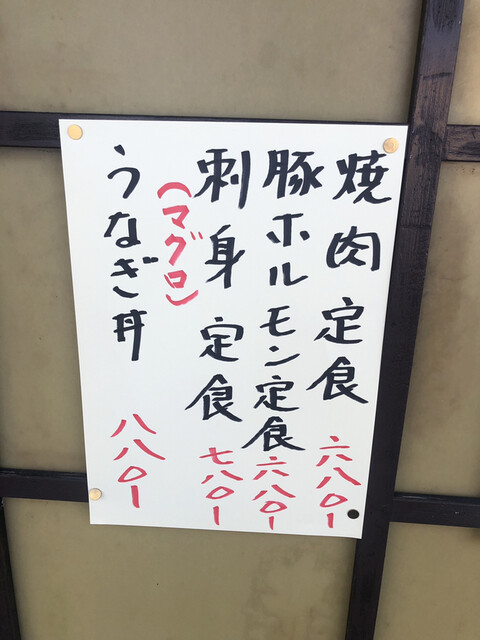 焼肉定食 六八〇ー
豚ホルモン定食 六八〇ー
刺身定食 七八〇ー
(マグロ)
うなぎ丼 八八〇ー